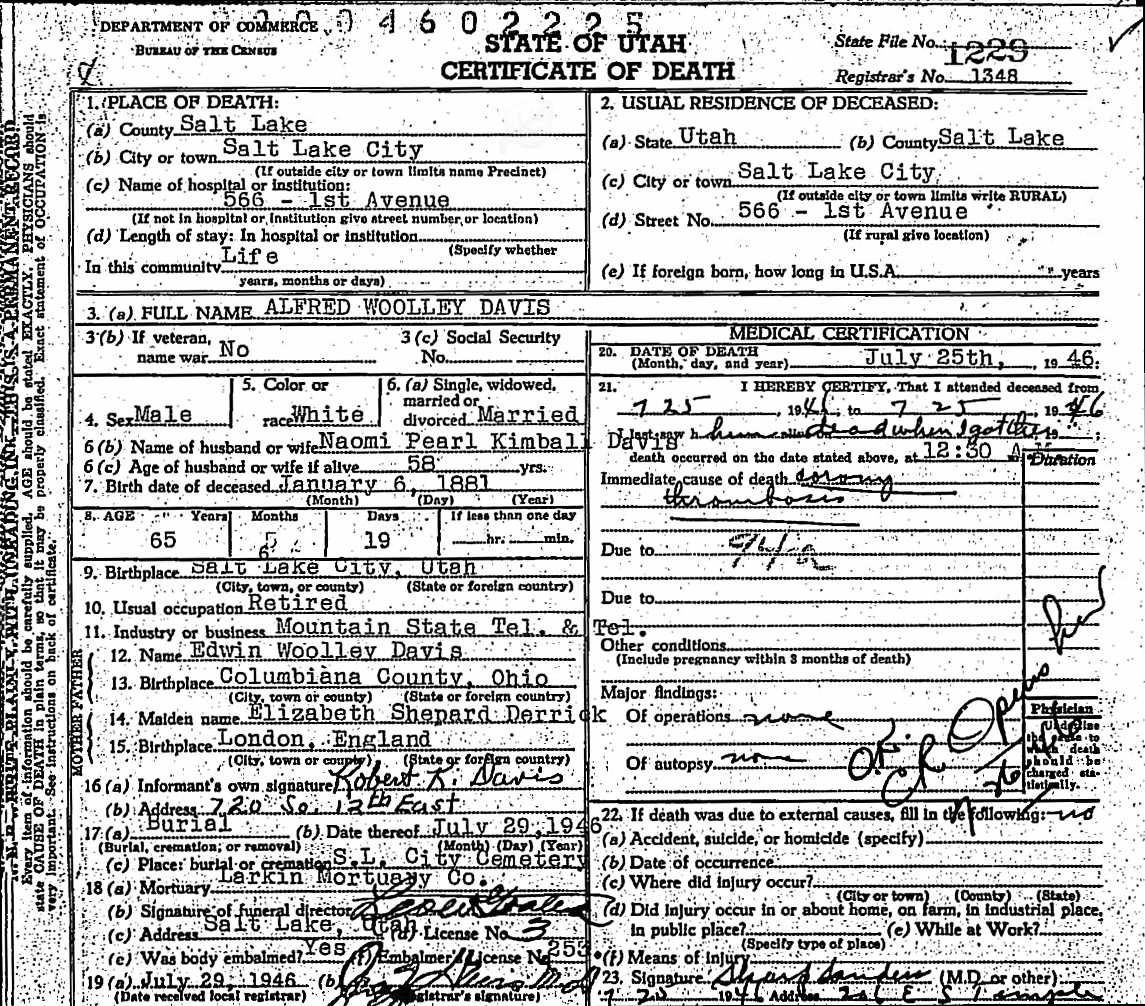 DEPARTMENT OF COMMERCE 0046022225
BUREAU OF THE CENSUS
STATE OF UTAH
CERTIFICATE OF DEATH
State File No. 1229
Registrar's No. 1348
1. PLACE OF DEATH:
(a) County Salt Lake
(b) City or town Salt Lake City
(If outside city or town limits name Precinct)
(c) Name of hospital or institution:
566 - 1st Avenue
(If not in hospital or institution give street number or location)
(d) Length of stay: In hospital or institution
(Specify whether
In this community Life
years, months or days)
2. USUAL RESIDENCE OF DECEASED:
(a) State Utah (b) County Salt Lake
(c) City or town Salt Lake City
(If outside city or town limits write RURAL)
(d) Street No. 566 - 1st Avenue
(If rural give location)
(e) If foreign born, how long in U.S.A. years
3. (a) FULL NAME ALFRED WOOLLEY DAVIS
3 (b) If veteran, name war No
3 (c) Social Security No.
4. Sex Male
5. Color or race White
6. (a) Single, widowed, married or divorced Married
6 (b) Name of husband or wife Naomi Pearl Kimball Davis
6 (c) Age of husband or wife if alive 58 yrs.
7. Birth date of deceased January 6, 1881
(Month) (Day) (Year)
8. AGE Years Months Days If less than one day
65 6 19 hr. min.
9. Birthplace Salt Lake City, Utah
(City, town, or county) (State or foreign country)
10. Usual occupation Retired
11. Industry or business Mountain State Tel. & Tel.
FATHER
12. Name Edwin Woolley Davis
13. Birthplace Columbiana County, Ohio
(City, town or county) (State or foreign country)
MOTHER
14. Maiden name Elizabeth Shepard Derrick
15. Birthplace London, England
(City, town or county) (State or foreign country)
16 (a) Informant's own signature Robert K. Davis
(b) Address 720 So. 12th East
17 (a) Burial (b) Date thereof July 29, 1946
(Burial, cremation, or removal) (Month) (Day) (Year)
(c) Place: burial or cremation S.L. City Cemetery
18 (a) Mortuary Larkin Mortuary Co.
(b) Signature of funeral director
(c) Address Salt Lake, Utah (d) License No. 3
(e) Was body embalmed? Yes (f) Embalmer's License No. 253
19 (a) July 29, 1946 (b)
(Date received local registrar) (Registrar's signature)
MEDICAL CERTIFICATION
20. DATE OF DEATH
(Month, day, and year) July 25th, 1946.
21. I HEREBY CERTIFY, That I attended deceased from
7 25, 1946, to 7 25, 1946
I last saw him dead when I got there 19 ;
death occurred on the date stated above, at 12:30 A M.
Duration
Immediate cause of death corony
thrombosis
Due to 94/a
Due to
Other conditions
(Include pregnancy within 3 months of death)
Major findings:
Of operations none
Of autopsy none
Physician
Underline the cause to which death should be charged statistically.
O.K.
22. If death was due to external causes, fill in the following: no
(a) Accident, suicide, or homicide (specify)
(b) Date of occurrence
(c) Where did injury occur?
(City or town) (County) (State)
(d) Did injury occur in or about home, on farm, in industrial place,
in public place? (e) While at Work?
(Specify type of place)
(f) Means of injury
23. Signature (M.D. or other)
1946 Address
N. B.—WRITE PLAINLY WITH UNFADING INK—THIS IS A PERMANENT RECORD
Every item of information should be carefully supplied. AGE should be stated EXACTLY. PHYSICIANS should
state CAUSE OF DEATH in plain terms, so that it may be properly classified. Exact statement of OCCUPATION is
very important. See instructions on back of certificate.